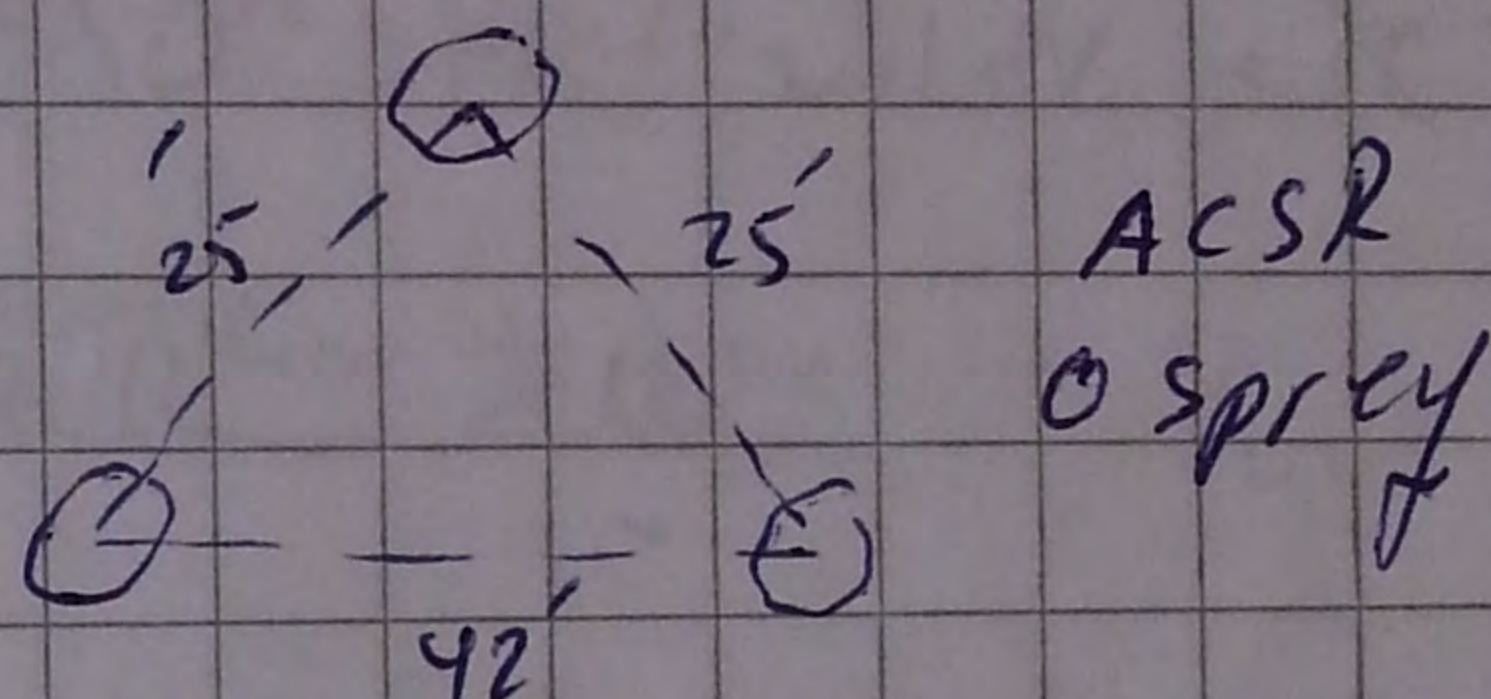 25' 25' ACSR
Osprey
42'